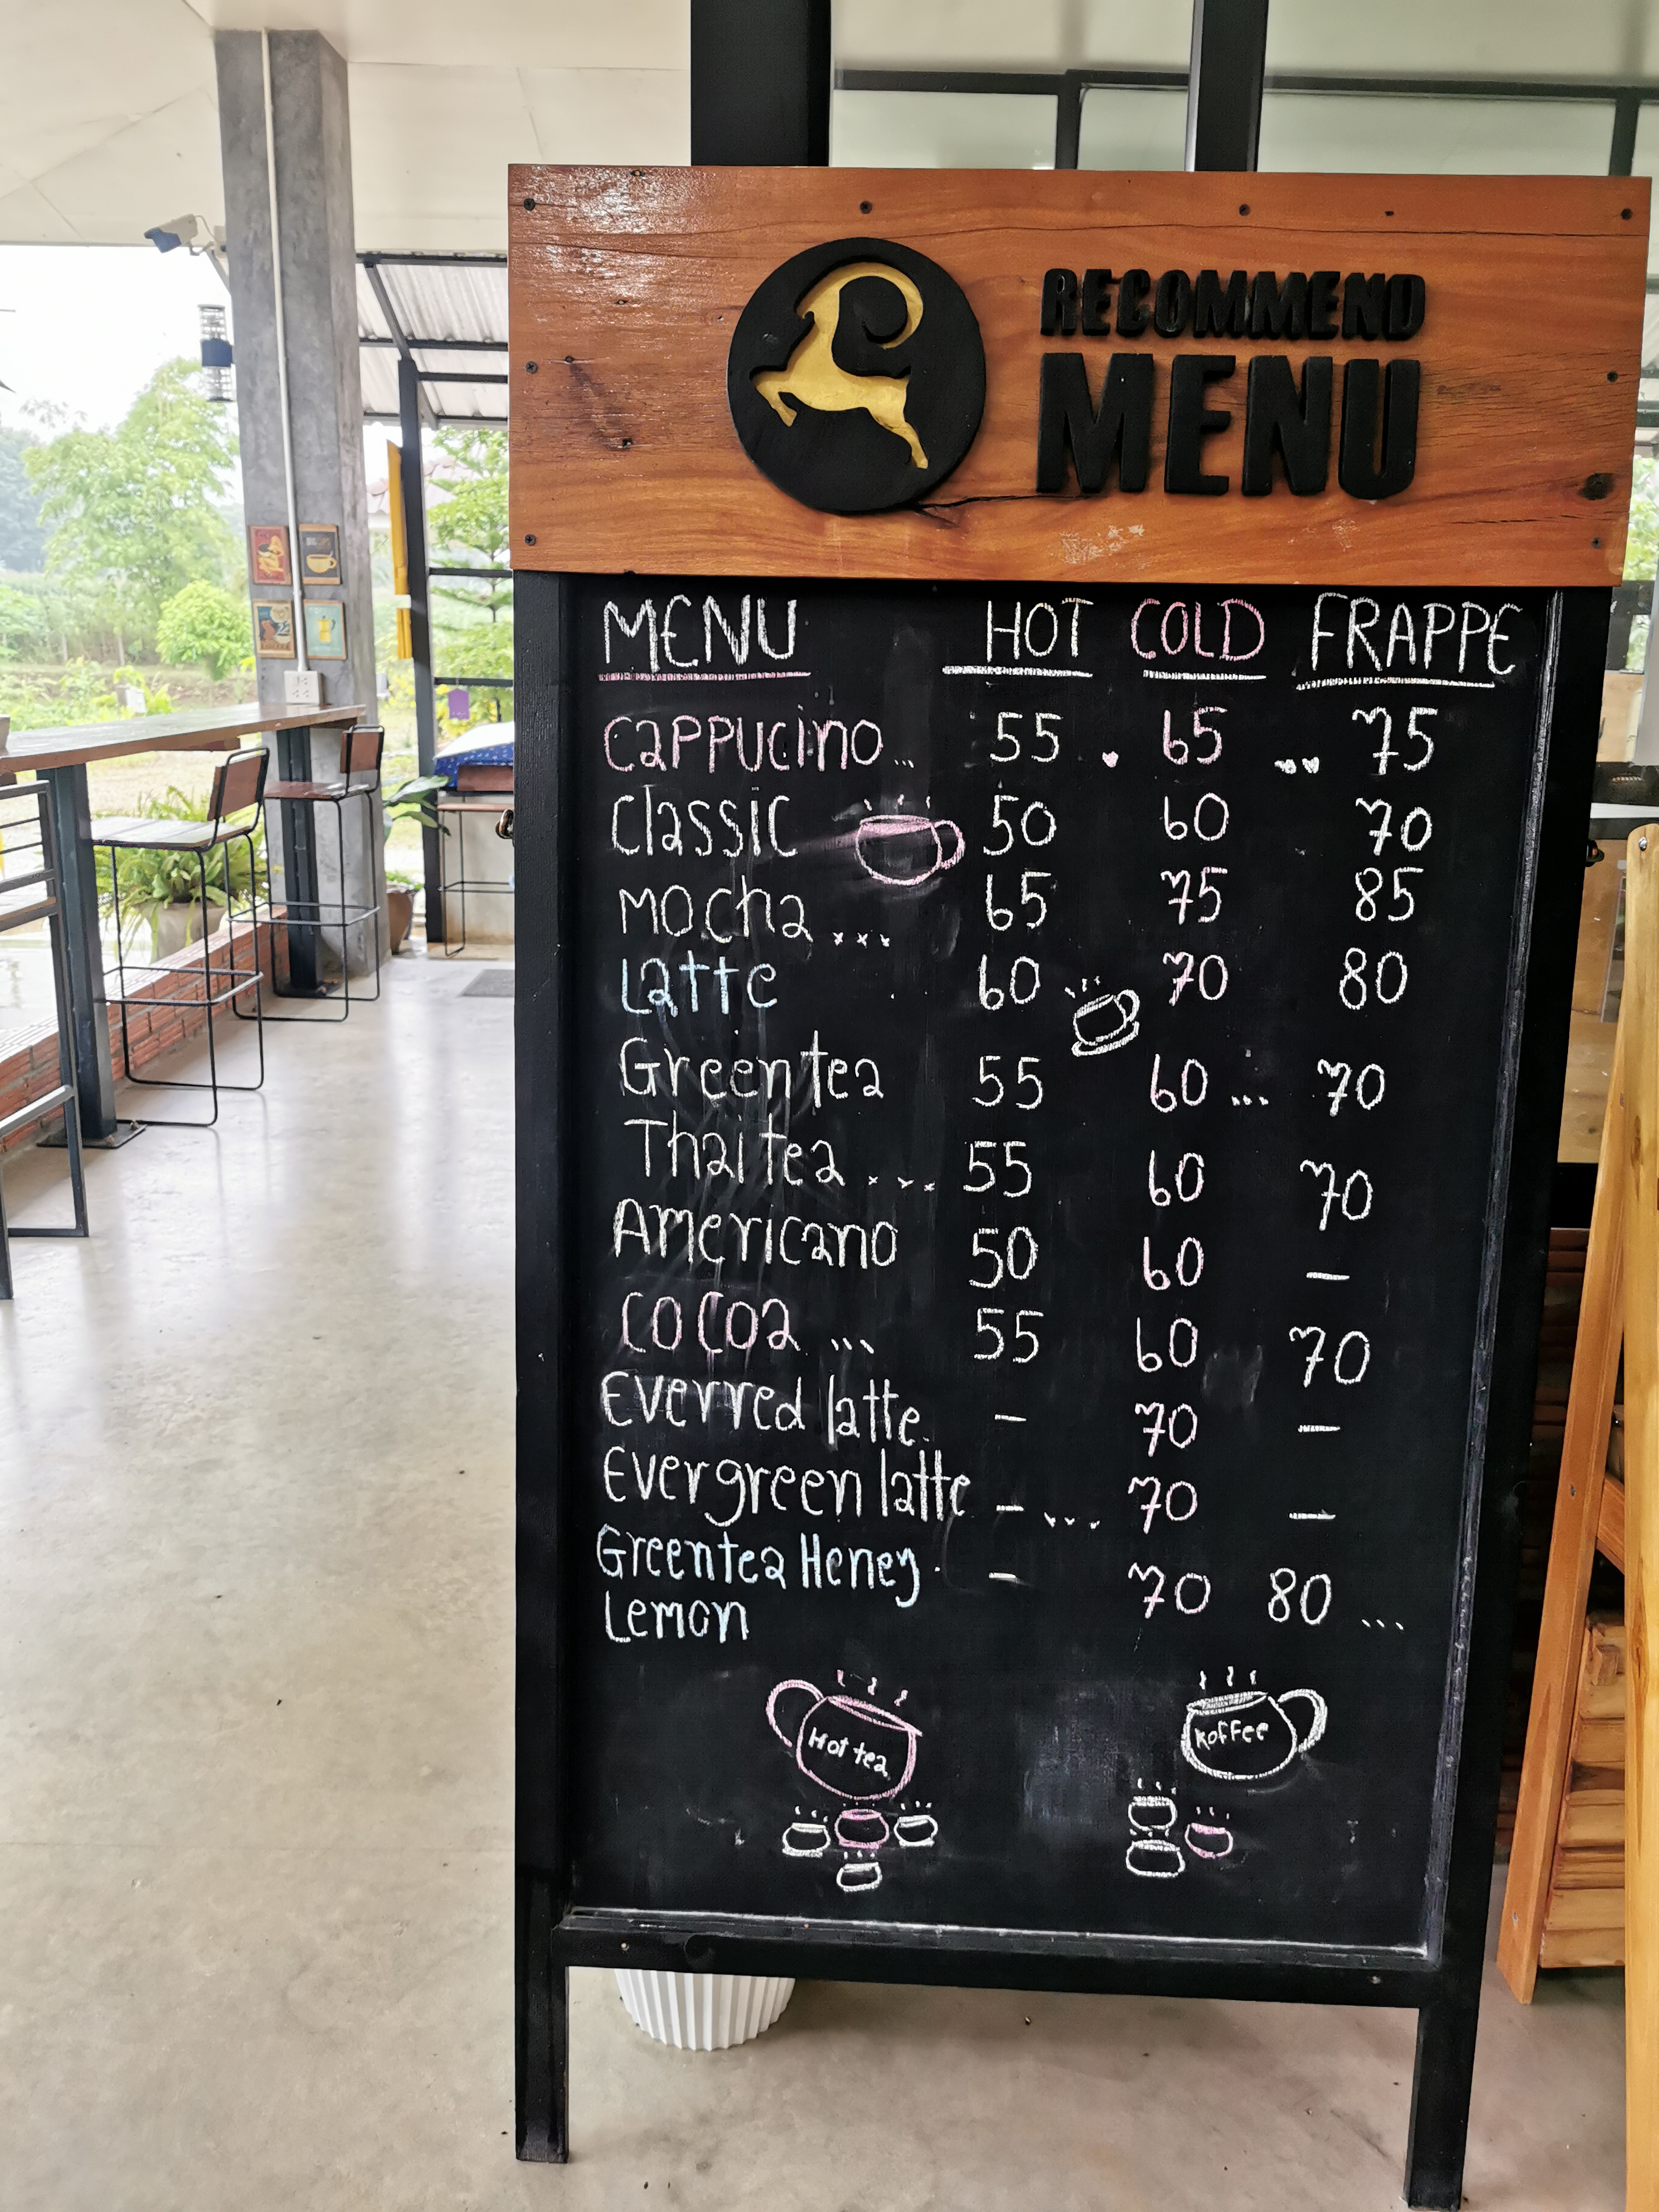 RECOMMEND
MENU
MENU HOT COLD FRAPPE
Cappucino... 55 65 75
Classic 50 60 70
Mocha... 65 75 85
Latte 60 70 80
Greentea 55 60 ... 70
Thai tea ... 55 60 70
Americano 50 60 -
Cocoa ... 55 60 70
Everred latte.. - 70 -
Evergreen latte - ... 70 -
Greentea Heney - 70 80 ...
Lemon
Hot tea
Koffee